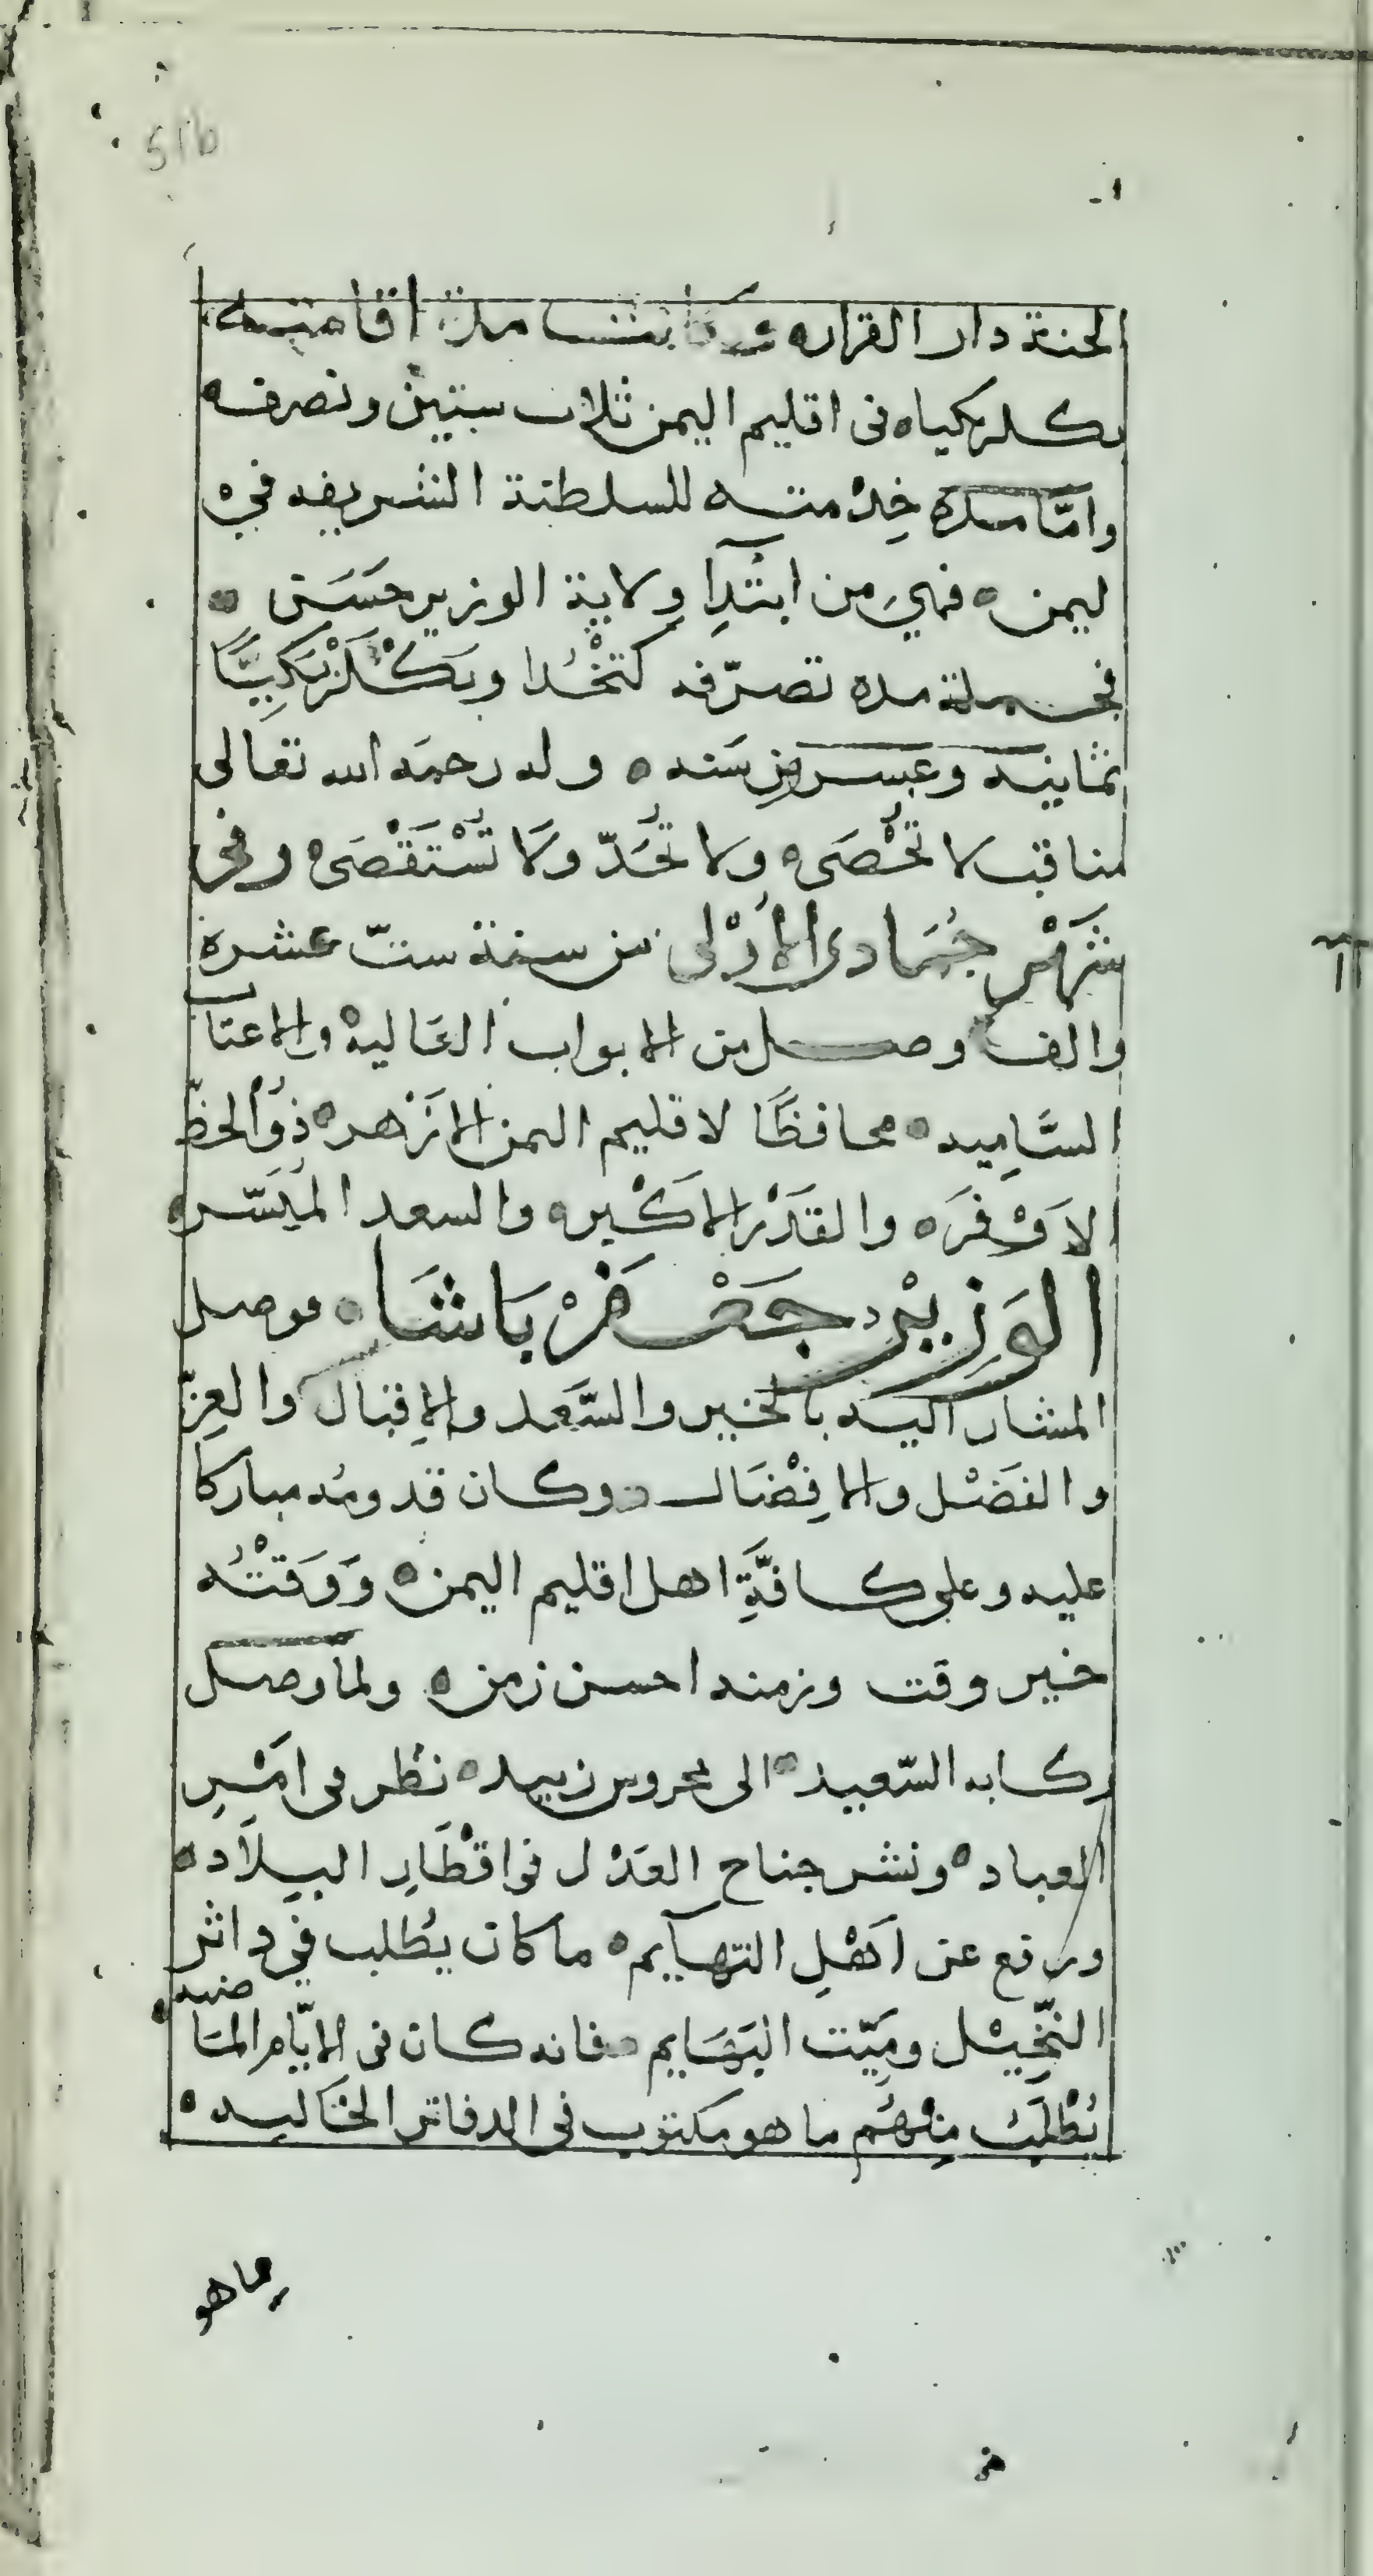 51b
الجنة دار القرار ه وكانت مدة اقامته
بكلربكياه فى اقليم اليمن ثلاث سنين وتصرفه
وامّا مدة خِدْمته للسلطنة الشريفه في ه
ليمن ه فهي من ابتدآ وِلاية الوزير حَسَن ه
فجملة مده تصرّفه كتخُدا وبَكْلَرْبَكِيًّا
ثمانيه وعشرين سَنه ه وله رحمَه الله تعالى
مناقب لا تُحْصَى ه ولا تُحَدّ ولَا تُسْتَقْصَى ه وفى
شَهْر جُمَادى الأُوْلى من سنة ستّ عشره
والف وصل من الابواب العَاليه ه والاعتاب
السَّامِيه ه محافظًا لاقليم اليمن الازَهر ه ذُو الحظّ
الاَوْفَر ه والقَدْر الاكْبر ه والسعد المُيَسَّر ه
الوَزِيْر جَعْفَرْ بَاشَا ه فوصل
المشار اليه بالخير والسَّعد والإقبال والعِزّ
والفَضْل والافِضَال ه وكان قدومُه مباركا
عليه وعلى كافَّةِ اهل اقليم اليمن ه وَوَقتُْه
خير وقت وزمنه احسن زمن ه ولمّا وصل
ركابه السّعيد ه الى محروس زبيد ه نظر فى امْرِ
العباد ه ونشر جناح العَدْل فى اقْطَارِ البِلَاد ه
ورفع عن اَهْلِ التهآيم ه ما كان يُطلب في داثر
النَّخِيْل ومَيّت البَهَايم ه فانه كان فى الايّام الماضيه ه
يُطْلَبُ مِنْهُم ما هو مكتوب فى الدفاتر الخَاليه ه
ما هو